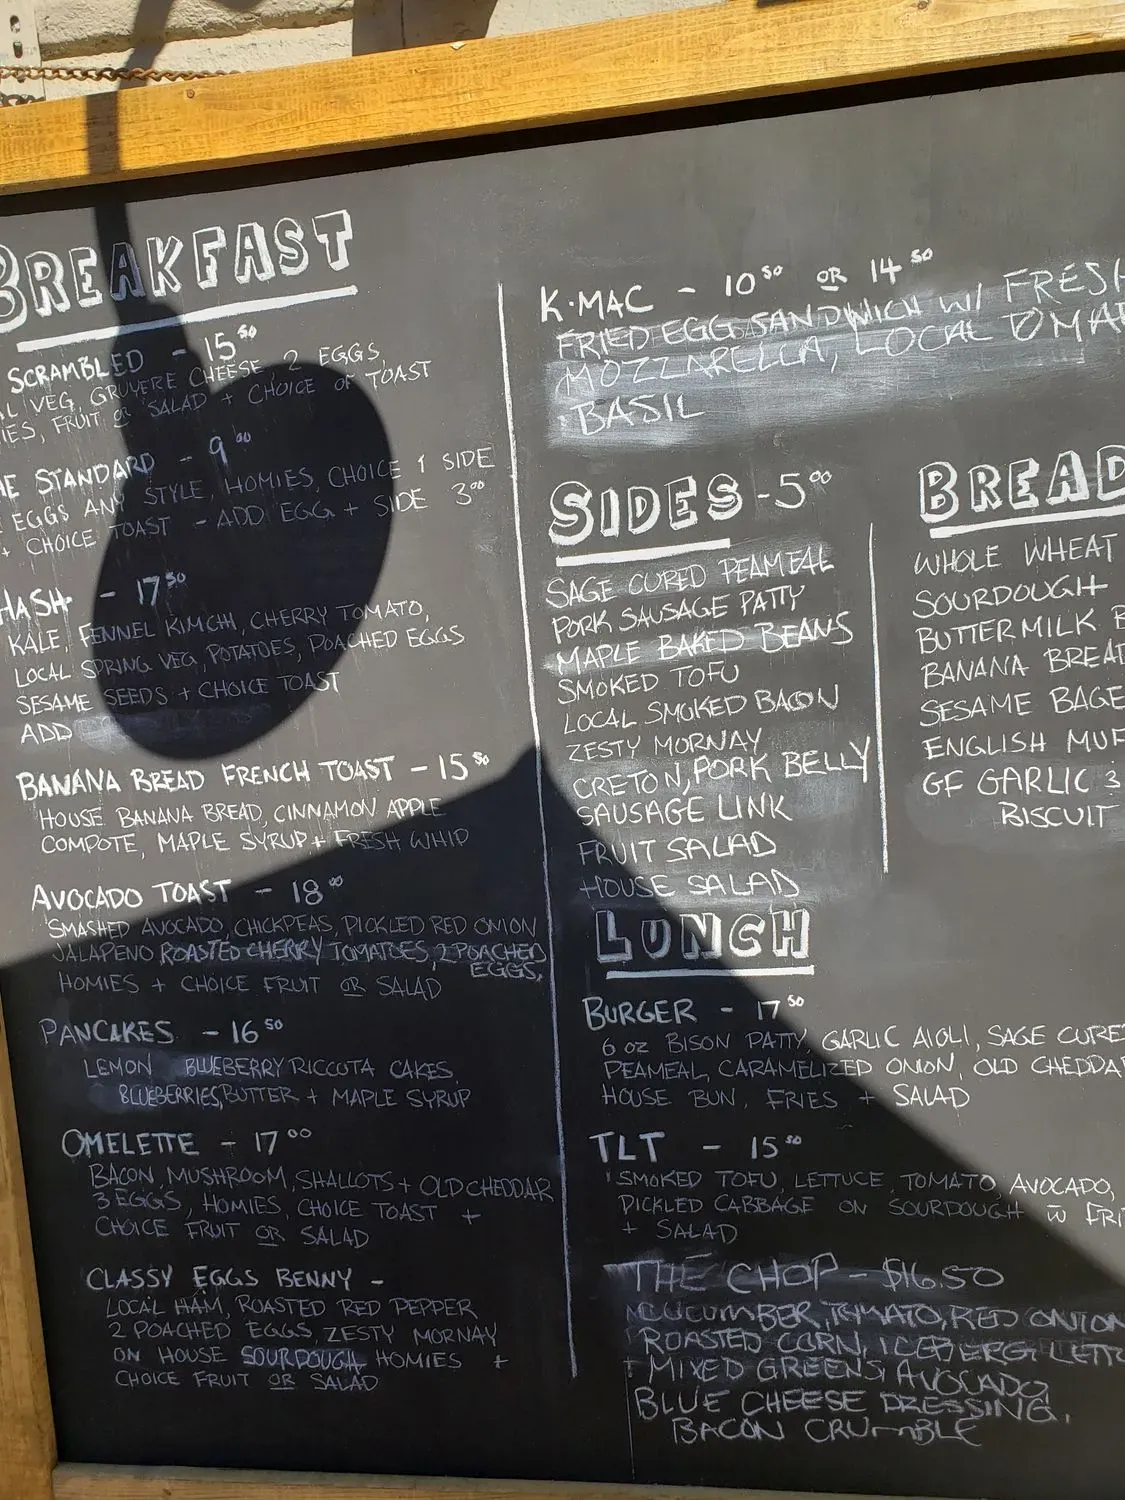 BREAKFAST
SCRAMBLED - 15 50
VEG, GRUYERE CHEESE, 2 EGGS,
FRUIT OR SALAD + CHOICE OF TOAST
STANDARD - 9 00
EGGS ANY STYLE, HOMIES, CHOICE 1 SIDE
+ CHOICE TOAST - ADD EGG + SIDE 3 00
HASH - 17 50
KALE, FENNEL KIMCHI, CHERRY TOMATO,
LOCAL SPRING VEG, POTATOES, POACHED EGGS
SESAME SEEDS + CHOICE TOAST
ADD
BANANA BREAD FRENCH TOAST - 15 50
HOUSE BANANA BREAD, CINNAMON APPLE
COMPOTE, MAPLE SYRUP + FRESH WHIP
AVOCADO TOAST - 18 00
SMASHED AVOCADO, CHICKPEAS, PICKLED RED ONION
JALAPENO ROASTED CHERRY TOMATOES, 2 POACHED
EGGS,
HOMIES + CHOICE FRUIT OR SALAD
PANCAKES - 16 50
LEMON BLUEBERRY RICCOTA CAKES,
BLUEBERRIES, BUTTER + MAPLE SYRUP
OMELETTE - 17 00
BACON, MUSHROOM, SHALLOTS + OLD CHEDDAR
3 EGGS, HOMIES, CHOICE TOAST +
CHOICE FRUIT OR SALAD
CLASSY EGGS BENNY -
LOCAL HAM, ROASTED RED PEPPER
2 POACHED EGGS, ZESTY MORNAY
ON HOUSE SOURDOUGH HOMIES +
CHOICE FRUIT OR SALAD
K·MAC - 10 50 OR 14 50
FRIED EGG SANDWICH W/ FRESH
MOZZARELLA, LOCAL
BASIL
SIDES - 5 00
SAGE CURED PEAMEAL
PORK SAUSAGE PATTY
MAPLE BAKED BEANS
SMOKED TOFU
LOCAL SMOKED BACON
ZESTY MORNAY
CRETON, PORK BELLY
SAUSAGE LINK
FRUIT SALAD
HOUSE SALAD
BREAD
WHOLE WHEAT
SOURDOUGH
BUTTERMILK B
BANANA BREAD
SESAME BAGE
ENGLISH MUF
GF GARLIC 3
BISCUIT
LUNCH
BURGER - 17 50
6 OZ BISON PATTY, GARLIC AIOLI, SAGE CURE
PEAMEAL, CARAMELIZED ONION, OLD CHEDDA
HOUSE BUN, FRIES + SALAD
TLT - 15 50
SMOKED TOFU, LETTUCE, TOMATO, AVOCADO,
PICKLED CABBAGE ON SOURDOUGH W FRI
+ SALAD
THE CHOP - $16.50
CUCUMBER, TOMATO, RED ONION
ROASTED CORN, ICEBERG LETTU
+ MIXED GREENS, AVOCADO,
BLUE CHEESE DRESSING,
BACON CRUMBLE